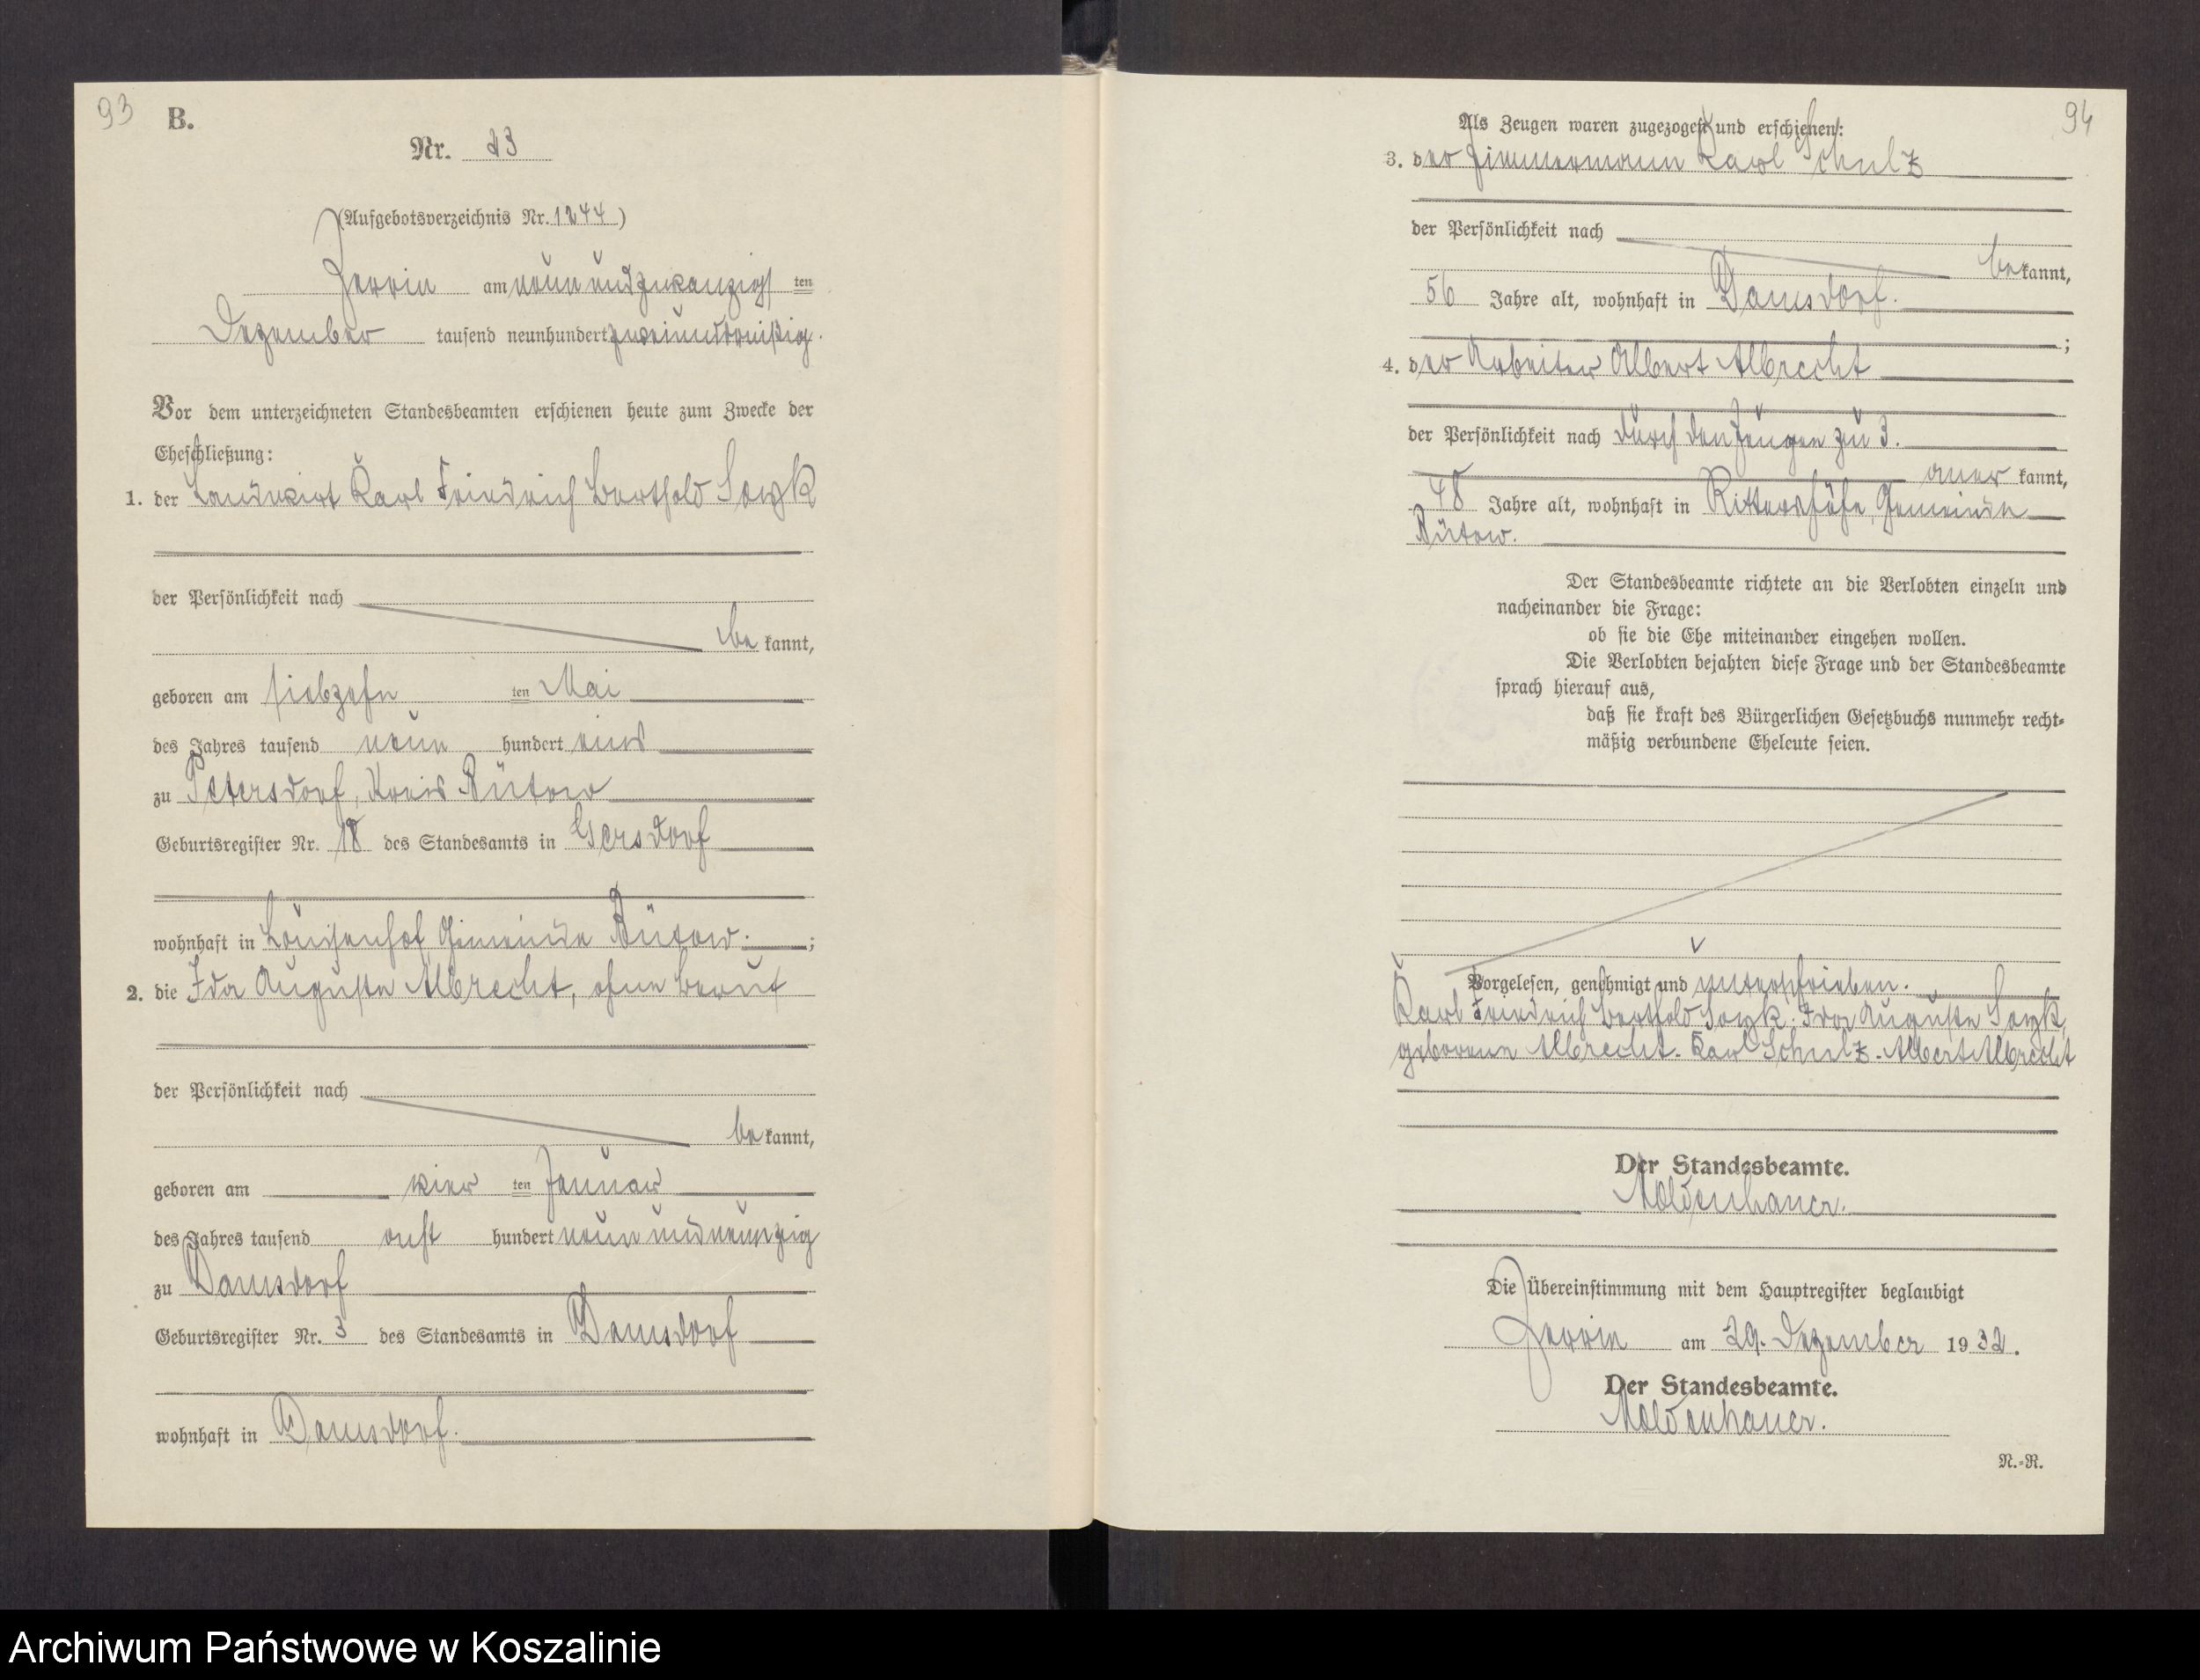 93
B.
Nr. 23
(Aufgebotsverzeichnis Nr. 1244)
Zerrin am neun und zwanzigsten
Dezember tausend neunhundert zweiunddreißig.
Vor dem unterzeichneten Standesbeamten erschienen heute zum Zwecke der
Eheschließung:
1. der Landwirt Karl Friedrich Berthold
der Persönlichkeit nach
bekannt,
geboren am siebzehn ten Mai
des Jahres tausend neun hundert eins
zu Petersdorf, Kreis Bütow
Geburtsregister Nr. 18 des Standesamts in Gersdorf
wohnhaft in Louisenhof Gemeinde Bütow. ;
2. die Ida Auguste Albrecht, ohne Beruf
der Persönlichkeit nach
bekannt,
geboren am vier ten Januar
des Jahres tausend acht hundert neun und neunzig
zu Damsdorf
Geburtsregister Nr. 3 des Standesamts in Damsdorf
wohnhaft in Damsdorf.
94
Als Zeugen waren zugezogen und erschienen:
3. der Zimmermann Karl Schulz
der Persönlichkeit nach
bekannt,
56 Jahre alt, wohnhaft in Damsdorf.
;
4. der Arbeiter Albert Albrecht
der Persönlichkeit nach durch den Zeugen zu 3.
aner kannt,
48 Jahre alt, wohnhaft in Rittershöfe, Gemeinde
Bütow.
Der Standesbeamte richtete an die Verlobten einzeln und
nacheinander die Frage:
ob sie die Ehe miteinander eingehen wollen.
Die Verlobten bejahten diese Frage und der Standesbeamte
sprach hierauf aus,
daß sie kraft des Bürgerlichen Gesetzbuchs nunmehr recht-
mäßig verbundene Eheleute seien.
Vorgelesen, genehmigt und unterschrieben.
Karl Friedrich Berthold Ida Auguste
geborene Albrecht. Karl Schulz. Albert Albrecht
Der Standesbeamte.
Moldenhauer.
Die Übereinstimmung mit dem Hauptregister beglaubigt
Zerrin am 29. Dezember 1932.
Der Standesbeamte.
Moldenhauer.
N.-R.
Archiwum Państwowe w Koszalinie